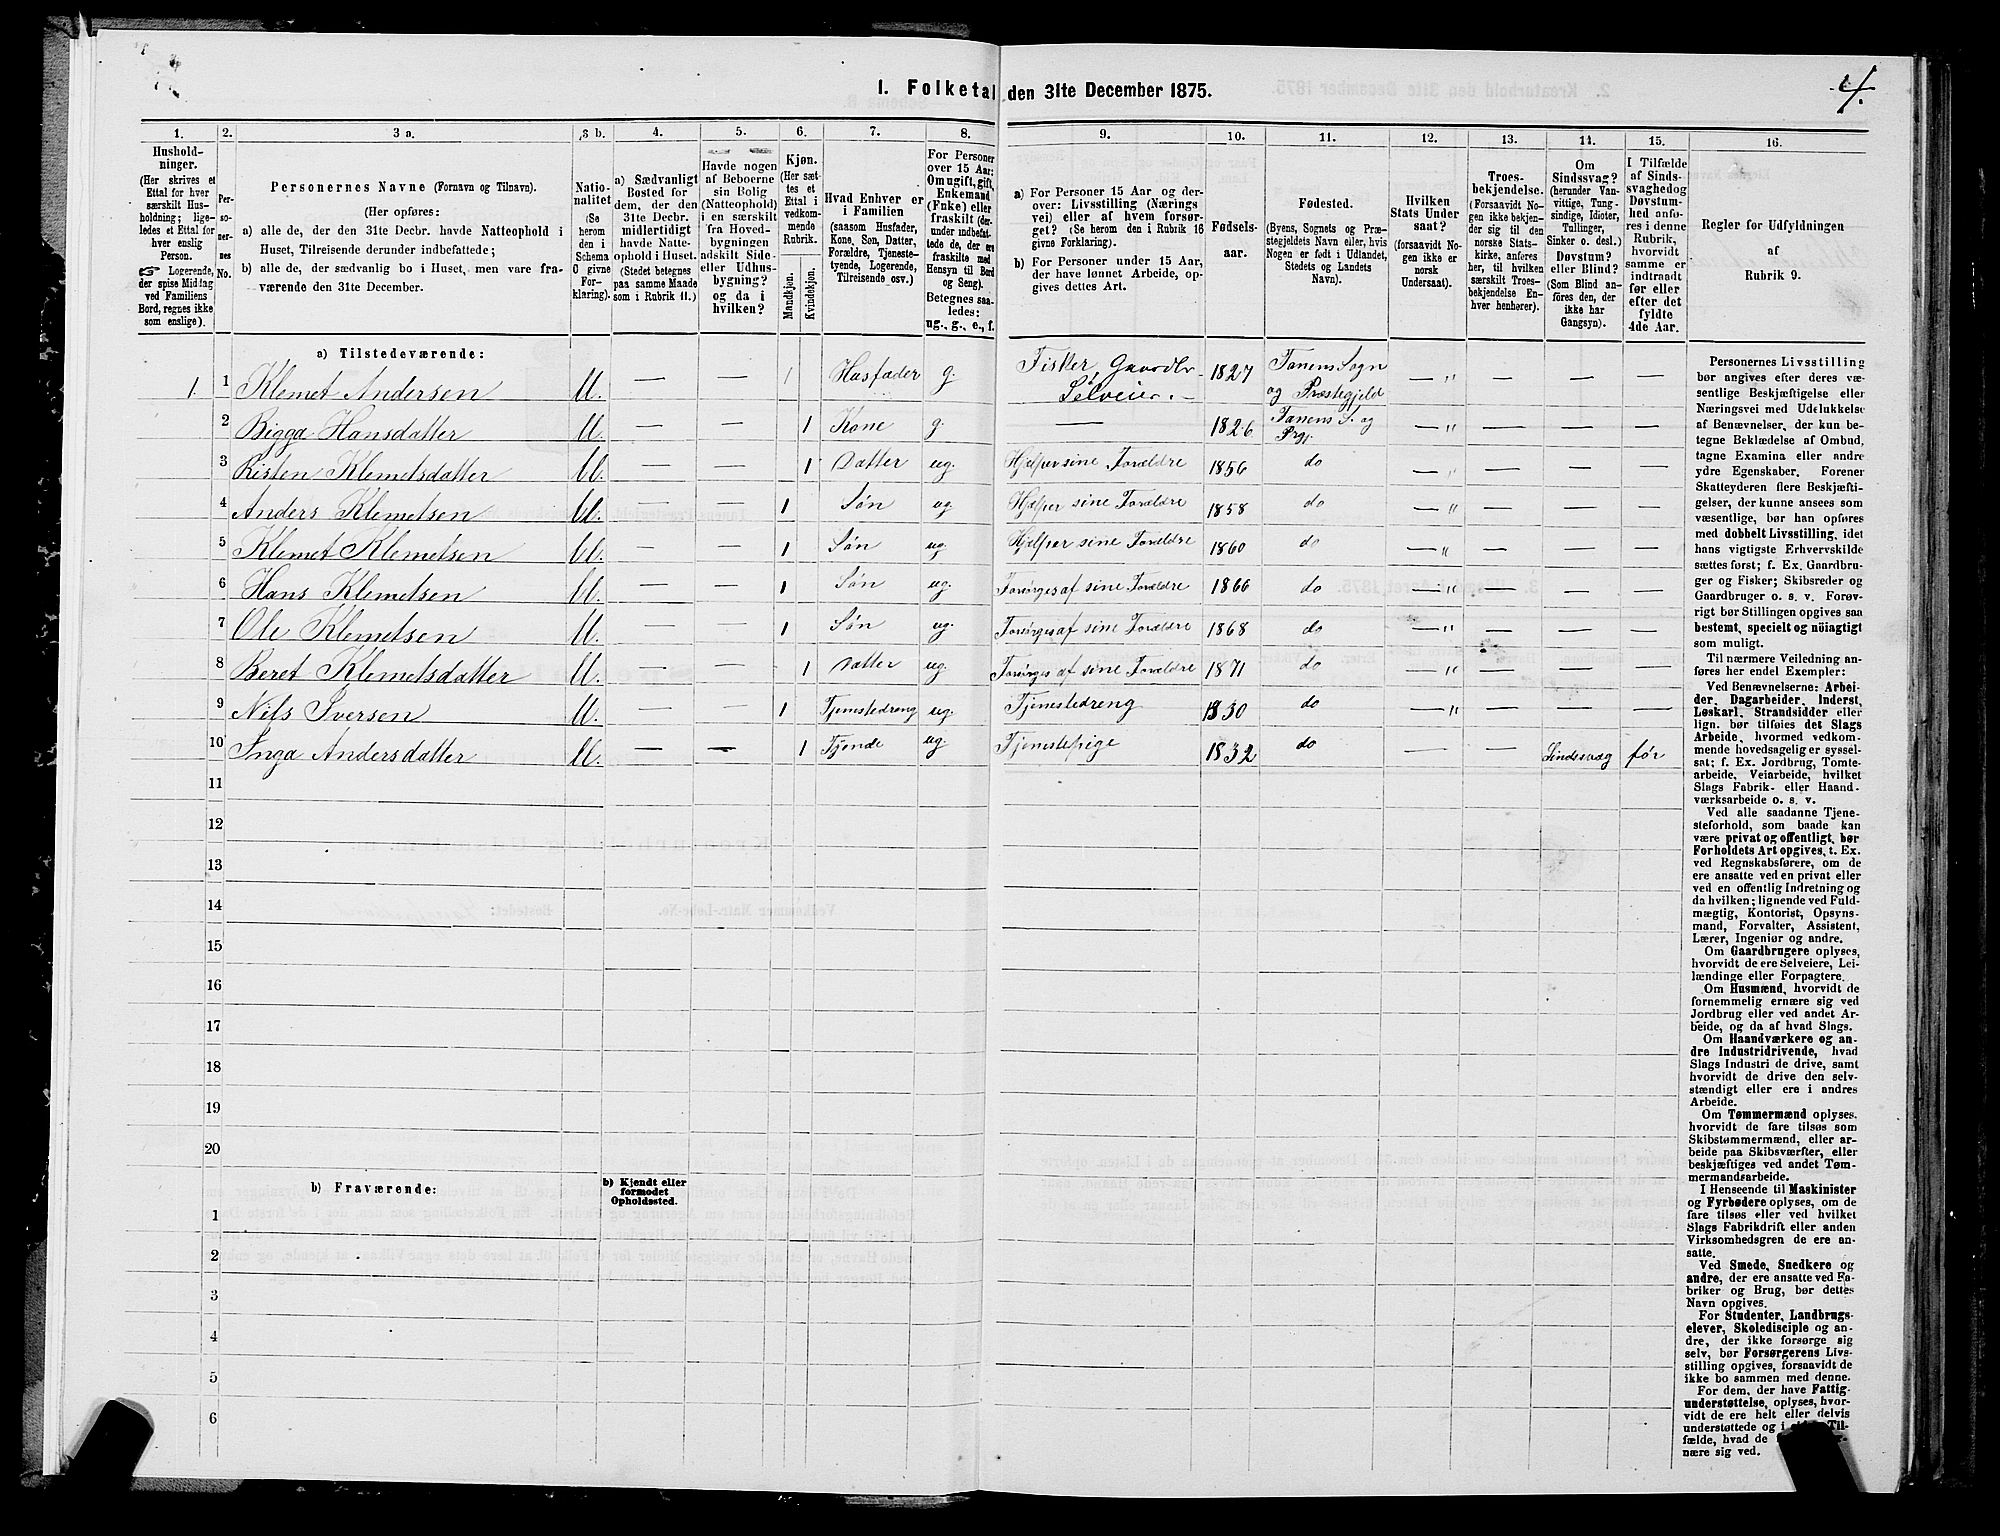 4.
1. Folketal den 31te December 1875.
1. 2. 3 a. 3 b. 4. 5. 6. 7. 8. 9. 10. 11. 12. 13. 14. 15. 16.
Hushold-
ninger.
(Her skrives et
Ettal for hver
særskilt Hus-
holdning; lige-
ledes et Ettal for
hver enslig
Person.
☞ Logerende,
der spise Middag
ved Familiens
Bord, regnes ikke
som enslige).
Per-
so-
ner-
nes
No.
Personernes Navne (Fornavn og Tilnavn).
(Her opføres:
a) alle de, der den 31te Decbr. havde Natteophold i
Huset, Tilreisende derunder indbefattede;
b) alle de, der sædvanlig bo i Huset, men vare fra-
værende den 31te December.
Natio-
nalitet
(Se
herom
den i
Schema
O givne
For-
klaring).
a) Sædvanligt
Bosted for
dem, der den
31te Decbr.
midlertidigt
havde Natte-
ophold i Huset.
(Stedet betegnes
paa samme Maade
som i Rubrik 11.)
Havde nogen
af Beboerne
sin Bolig
(Natteophold)
i en særskilt
fra Hoved-
bygningen
adskilt Side-
eller Udhus-
bygning?
og da i
hvilken?
Kjøn.
(Her sæt-
tes et
Ettal i
vedkom-
mende
Rubrik.
Mandkjøn.
Kvindekjøn.
Hvad Enhver er
i Familien
(saasom Husfader,
Kone, Søn, Datter,
Forældre, Tjeneste-
tyende, Logerende,
Tilreisende osv.)
For Personer
over 15 Aar:
Om ugift, gift,
Enkemand
(Enke) eller
fraskilt (der-
under indbefat-
tede de, der ere
fraskilte med
Hensyn til Bord
og Seng).
Betegnes saa-
ledes:
ug., g., e., f.
a) For Personer 15 Aar og der-
over: Livsstilling (Nærings
vei) eller af hvem forsør-
get? (Se herom den i Rubrik 16
givne Forklaring).
b) For Personer under 15 Aar,
der have lønnet Arbeide, op-
gives dettes Art.
Fødsels-
aar.
Fødested.
(Byens, Sognets og Præ-
stegjeldets Navn eller, hvis
Nogen er født i Udlandet,
Stedets og Landets
Navn).
Hvilken
Stats Under
saat?
(forsaavidt No-
gen ikke er
norsk
Undersaat).
Troes-
bekjendelse.
(Forsaavidt No-
gen ikke bekjen-
der sig til den
norske Stats-
kirke, anføres
her, til hvilken
særskilt Troes-
bekjendelse En-
hver henhører).
Om
Sindssvag?
(herunder Van-
vittige, Tung-
sindige, Idioter,
Tullinger,
Sinker o. desl.)
Døvstum?
eller Blind?
(Som Blind an-
føres den, der
ikke har
Gangsyn).
I Tilfælde
af Sinds-
svaghed og
Døvstum-
hed anfø-
res i denne
Rubrik,
hvorvidt
samme er
indtraadt
før eller
efter det
fyldte
4de Aar.
Regler for Udfyldningen
af
Rubrik 9.
a) Tilstedeværende:
1. 1 Klemet Andersen M. — — 1 Husfader g. Fisker, Gaardbr. Selveier. — 1827 Tanens Sogn og Præstegjeld — " — — —
2 Bigga Hansdatter M. — — 1 Kone g. — 1826 Tanens S. og Prgj. — " — — —
3 Risten Klemetsdatter M. — — 1 Datter ug. Hjelper sine Forældre 1856 do — " — — —
4 Anders Klemetsen M. — — 1 Søn ug. Hjelper sine Forældre 1858 do — " — — —
5 Klemet Klemetsen M. — — 1 Søn ug. Hjelper sine Forældre 1860 do — " — — —
6 Hans Klemetsen M. — — 1 Søn ug. Forsørges af sine Forældre 1866 do — " — — —
7 Ole Klemetsen M. — — 1 Søn ug. Forsørges af sine Forældre 1868 do — " — — —
8 Beret Klemetsdatter M. — — 1 Datter ug. Forsørges af sine Forældre 1871 do — " — — —
9 Nils Iversen M. — — 1 Tjenestedreng ug. Tjenestedreng 1830 do — " — — —
10 Inga Andersdatter M. — — 1 Tjende ug Tjenestepige 1832 do — — Sindssvag før
11
12
13
14
15
16
17
18
19
20
b) Fraværende:
b) Kjendt eller
formodet
Opholdssted.
1
2
3
4
5
6
Personernes Livsstilling
bør angives efter deres væ-
sentlige Beskjæftigelse eller
Næringsvei med Udelukkelse
af Benævnelser, der kun be-
tegne Beklædelse af Ombud,
tagne Examina eller andre
ydre Egenskaber. Forener
Skatteyderen flere Beskjæfti-
gelser, der kunne ansees som
væsentlige, bør han opføres
med dobbelt Livsstilling, idet
hans vigtigste Erhvervskilde
sættes først; f. Ex. Gaardbru-
ger og Fisker; Skibsreder og
Gaardbruger o. s. v. Forøv-
rigt bør Stillingen opgives saa
bestemt, specielt og nøiagtigt
som muligt.
Til nærmere Veiledning an-
føres her endel Exempler:
Ved Benævnelserne: Arbei-
der, Dagarbeider, Inderst,
Løskarl, Strandsidder eller
lign. bør tilføies det Slags
Arbeide, hvormed vedkom-
mende hovedsagelig er syssel-
sat; f. Ex. Jordbrug, Tomte-
arbeide, Veiarbeide, hvilket
Slags Fabrik- eller Haand-
værksarbeide o. s. v.
Ved alle saadanne Tjene-
steforhold, som baade kan
være privat og offentligt, bør
Forholdets Art opgives, t. Ex.
ved Regnskabsførere, om de
ere ansatte ved en privat eller
ved en offentlig Indretning og
da hvilken; lignende ved Fuld-
mægtig, Kontorist, Opsyns-
mand, Forvalter, Assistent,
Lærer, Ingeniør og andre.
Om Gaardbrugere oplyses,
hvorvidt de ere Selveiere, Lei-
lændinge eller Forpagtere.
Om Husmænd, hvorvidt de
fornemmelig ernære sig ved
Jordbrug eller ved andet Ar-
beide, og da af hvad Slags.
Om Haandværkere og an-
dre Industridrivende, hvad
Slags Industri de drive, samt
hvorvidt de drive den selv-
stændigt eller ere i andres
Arbeide.
Om Tømmermænd oplyses,
hvorvidt de fare tilsøs som
Skibstømmermænd, eller ar-
beide paa Skibsværfter, eller
beskjæftiges ved andet Tøm-
mermandsarbeide.
I Henseende til Maskinister
og Fyrbødere oplyses, om de
fare tilsøs eller ved hvilket
Slags Fabrikdrift eller anden
Virksomhedsgren de ere an-
satte.
Ved Smede, Snedkere og
andre, der ere ansatte ved Fa-
briker og Brug, bør dettes
Navn opgives.
For Studenter, Landbrugs-
elever, Skoledisciple og an-
dre, der ikke forsørge sig
selv, bør Forsørgerens Livs-
stilling opgives, forsaavidt de
ikke bo sammen med denne.
For dem, der have Fattig-
understøttelse, oplyses, hvor-
vidt de ere helt eller delvis
understøttede og i
fælde, hvad de
nære sig ved.